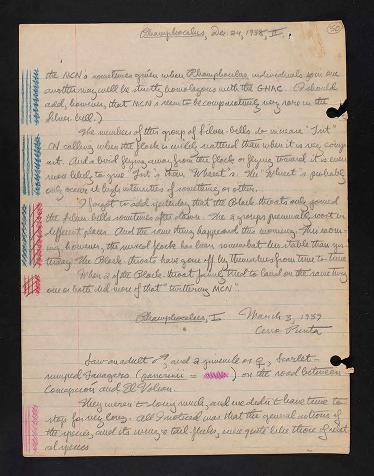 Rhamphocelus, Dec. 24, 1958, II.
the NCN's sometimes given when Rhamphocelus individuals join one
another may well be strictly homologous with the GHAC. (I should
add, however, that NCN's seem to be comparatively very rare in the
Silver-bill.)
The members of this group of Silver-bills do increase "Tsit"
CN calling when the flock is widely scattered than when it is very comp-
act. And a bird flying away from the flock or flying toward it is even
more likely to give "Tsit's than "Wheet's. The "Wheet's probably
only occur at high intensities of something or other.
I forgot to add yesterday that the Black-throats only joined
the Silver-bills sometime after dawn. The 2 groups presumably roost in
different places. And the same thing happened this morning. This morn-
ing, however, the mixed flock has been somewhat less stable than yes-
terday. The Black-throats have gone off by themselves from time to time.
When 2 of the Black-throats family tried to land on the same twig
one or both did more of that "twittering NCN".
Rhamphocelus, I March 3, 1959
Cerro Punta
Saw an adult ♂, and a juvenile or ♀, Scarlet-
rumped Tanagers (passerinii = ) on the road between
Concepcion and El Volcan.
They weren't doing much, and we didn't have time to
stop for very long. All I noticed was that the general actions of
the species, and its wing & tail flicks, were quite like those of related
species